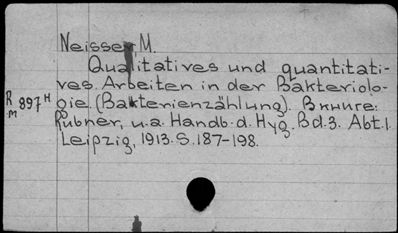 Neisser, M.
Qualitatives und quantitati-
ves Arbeiten in der Bakteriolo-
gie. (Bakterienzählung). В книге:
Rubner, u.a. Handb. d. Hyg. Bd.3. Abt.1.
Leipzig, 1913. S. 187-198.
R 897 H
M